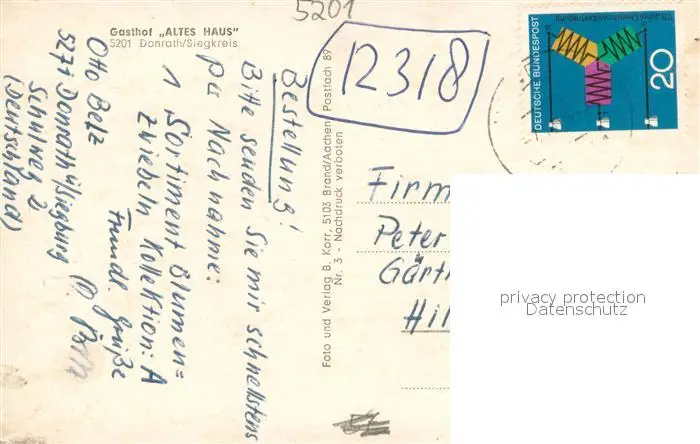 5201
Gasthof „ALTES HAUS"
5201 Donrath/Siegkreis
Otto Belz
5271 Donrath/Siegburg
Schulweg 2
(Deutschland)
Bestellung!
Bitte senden Sie mir schnellstens
per Nachnahme:
1 Sortiment Blumen=
zwiebeln Kollektion: A
Freundl. Grüße
Foto und Verlag B. Korr, 5103 Brand/Aachen, Postfach 89
Nr. 3 - Nachdruck verboten
12318
DEUTSCHE BUNDESPOST
20
Firm
Peter
Gärtn
Hil
privacy protection
Datenschutz